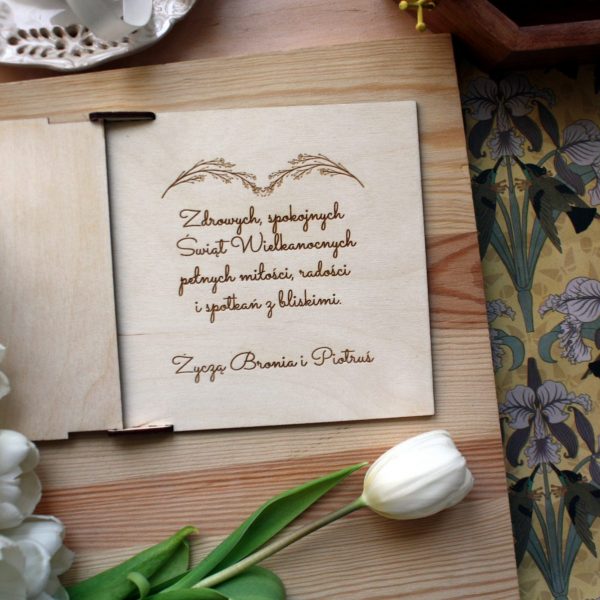 Zdrowych, spokojnych
Świąt Wielkanocnych
pełnych miłości, radości
i spotkań z bliskimi.
Życzą Bronia i Piotruś